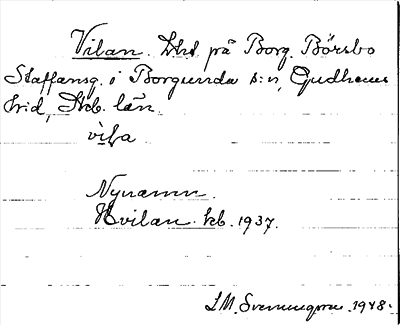 Vilan. Lht på Borg. Börsbo
Staffansg. i Borgunda s:n, Gudhems
hrd, Skb. län.
vila
Nynamn.
Hvilan kb. 1937.
S.M. Svenningson 1948.